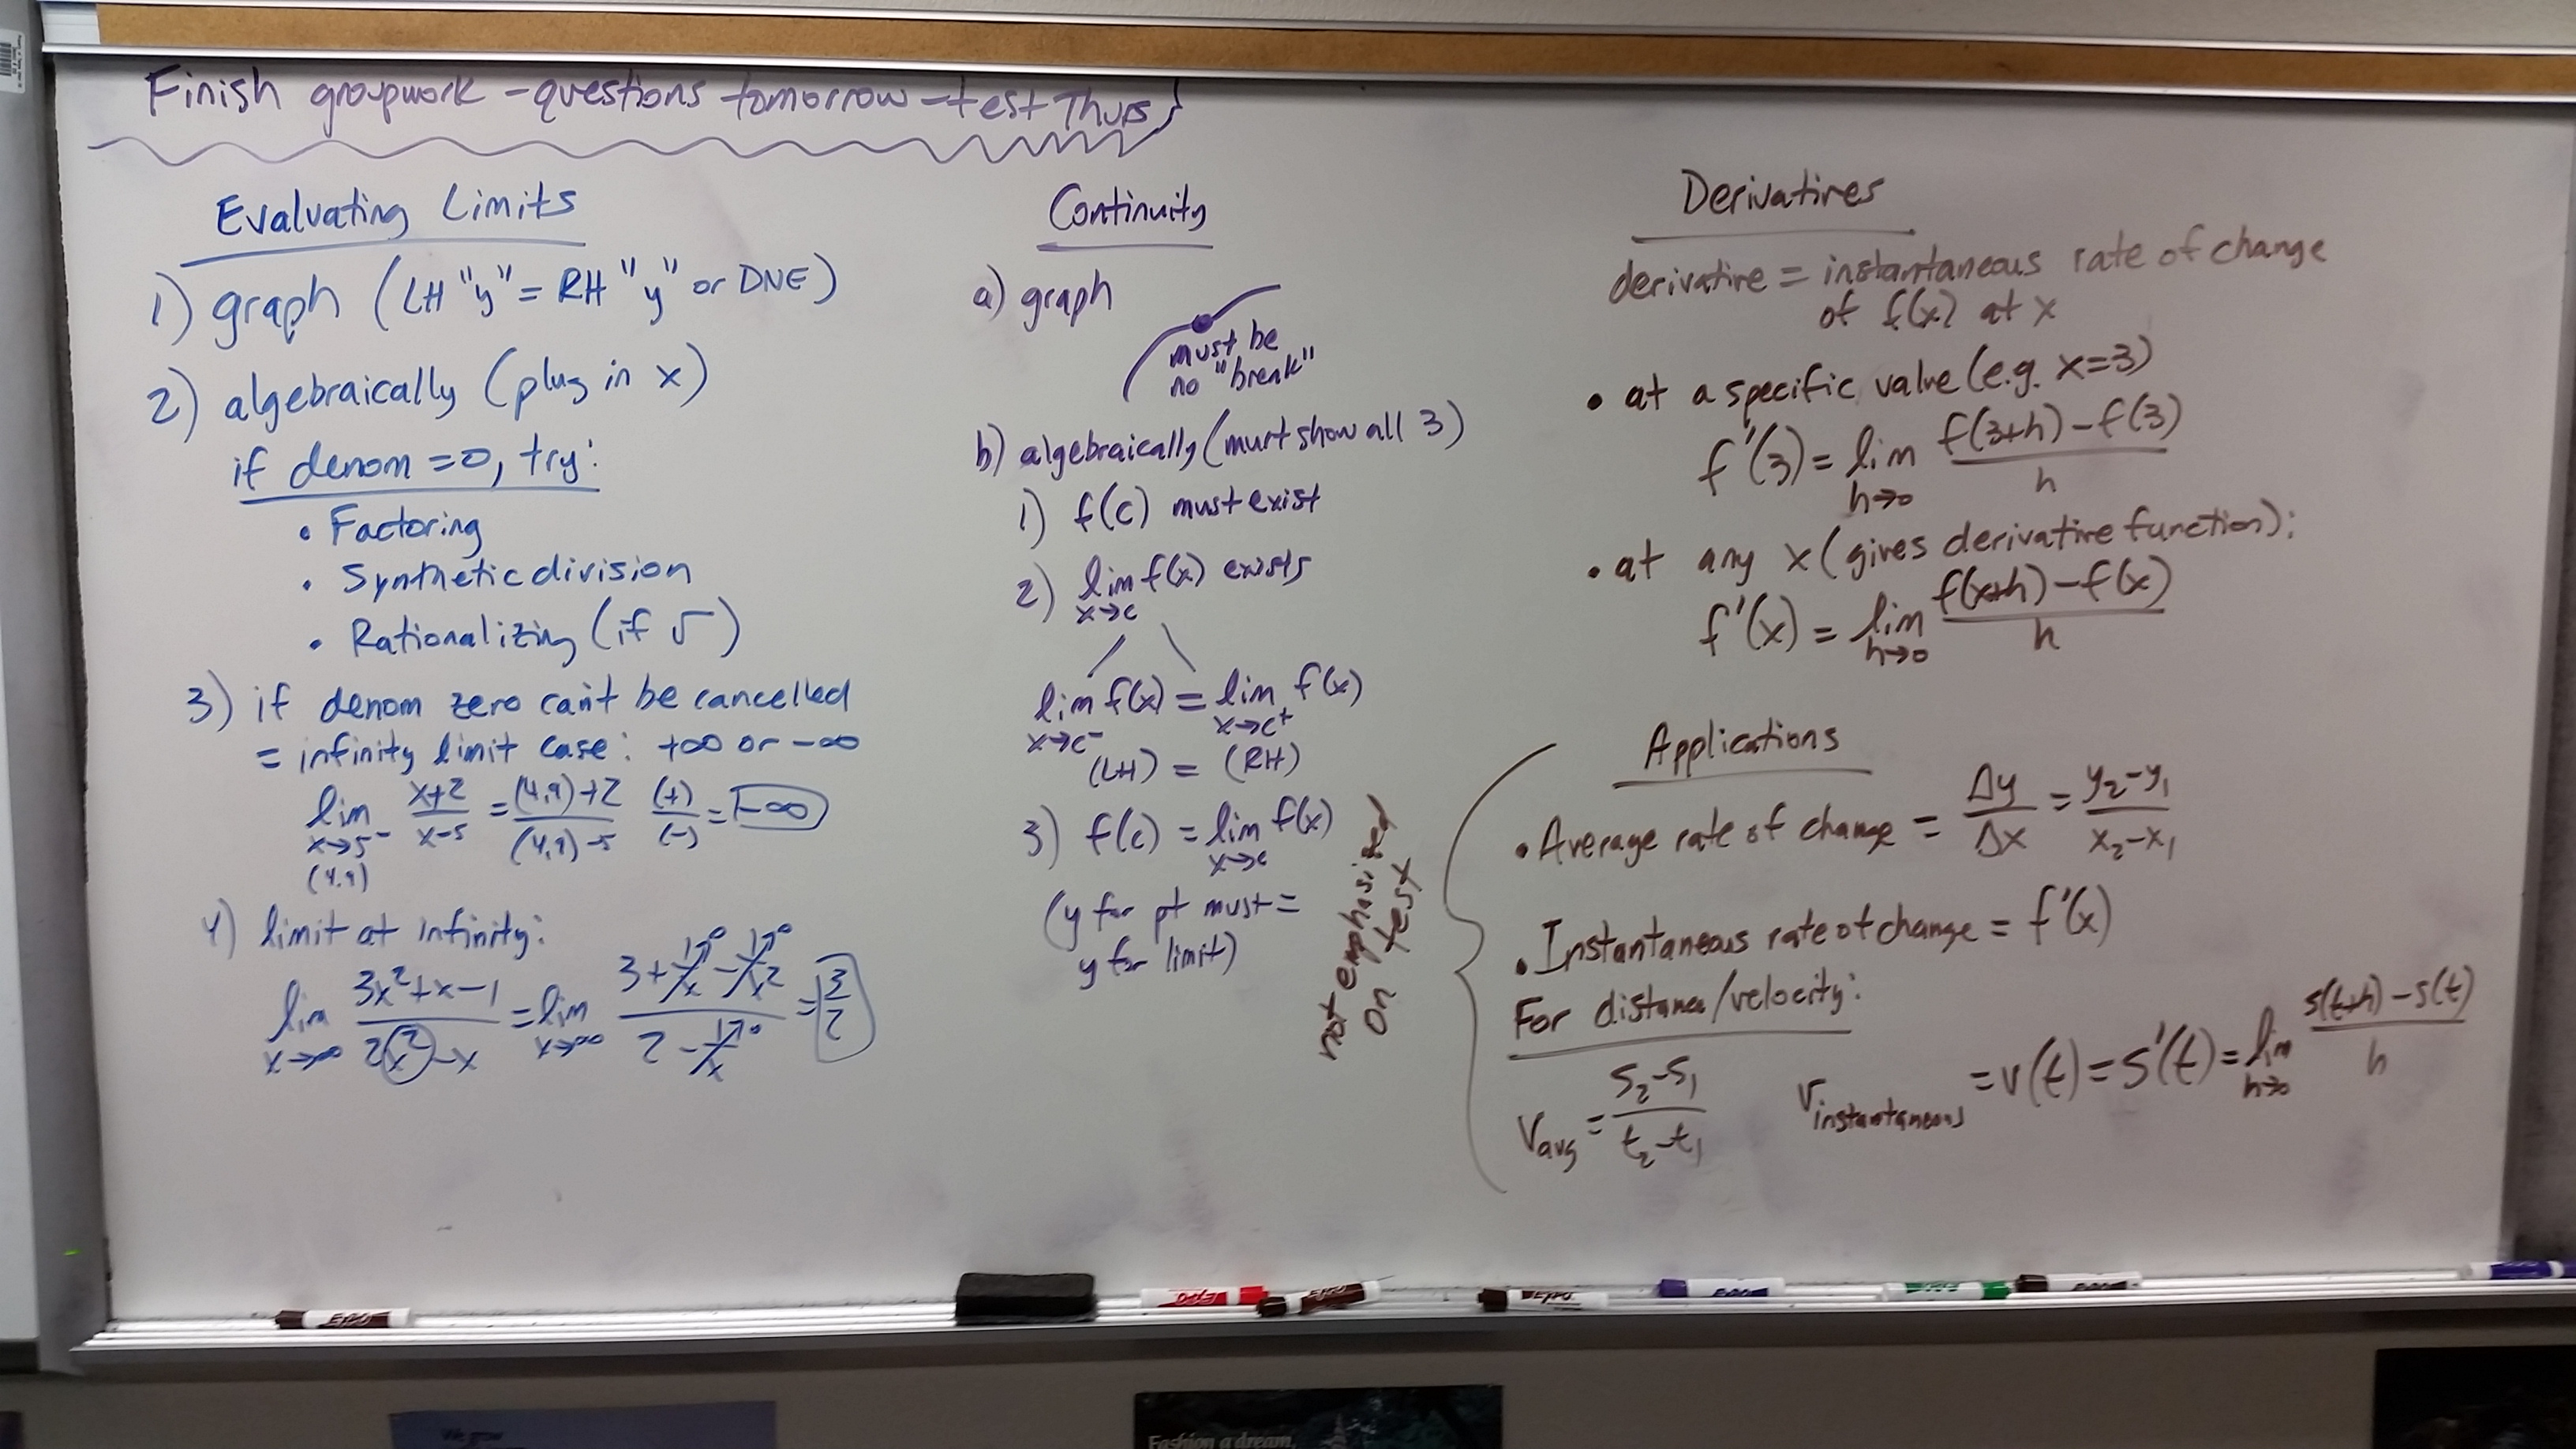 Finish groupwork - questions tomorrow - test Thurs
Evaluating Limits
1) graph (LH "y" = RH "y" or DNE)
2) algebraically (plug in x)
if denom = 0, try:
• Factoring
• Synthetic division
• Rationalizing (if √ )
3) if denom zero can't be cancelled
= infinity limit case: +∞ or -∞
lim x→5⁻ (4.9) (x+2)/(x-5) = ((4.9)+2)/((4.9)-5) (+)/(-) = -∞
4) limit at infinity:
lim x→∞ (3x²+x-1)/(2x²-x) = lim x→∞ (3 + 1/x→0 - 1/x²→0)/(2 - 1/x→0) = 3/2
Continuity
a) graph
must be
no "break"
b) algebraically (must show all 3)
1) f(c) must exist
2) lim x→c f(x) exists
lim x→c⁻ f(x) = lim x→c⁺ f(x)
(LH) = (RH)
3) f(c) = lim x→c f(x)
(y for pt must =
y for limit)
Derivatives
derivative = instantaneous rate of change
of f(x) at x
• at a specific value (e.g. x=3)
f'(3) = lim h→0 (f(3+h) - f(3))/h
• at any x (gives derivative function):
f'(x) = lim h→0 (f(x+h) - f(x))/h
not emphasized
on test
Applications
• Average rate of change = Δy/Δx = (y₂-y₁)/(x₂-x₁)
• Instantaneous rate of change = f'(x)
For distance/velocity:
Vavg = (s₂-s₁)/(t₂-t₁)
Vinstantaneous = v(t) = s'(t) = lim h→0 (s(t+h) - s(t))/h
EXPO
EXPO
EXPO
EXPO
EXPO
EXPO
We grow
Fashion a dream.